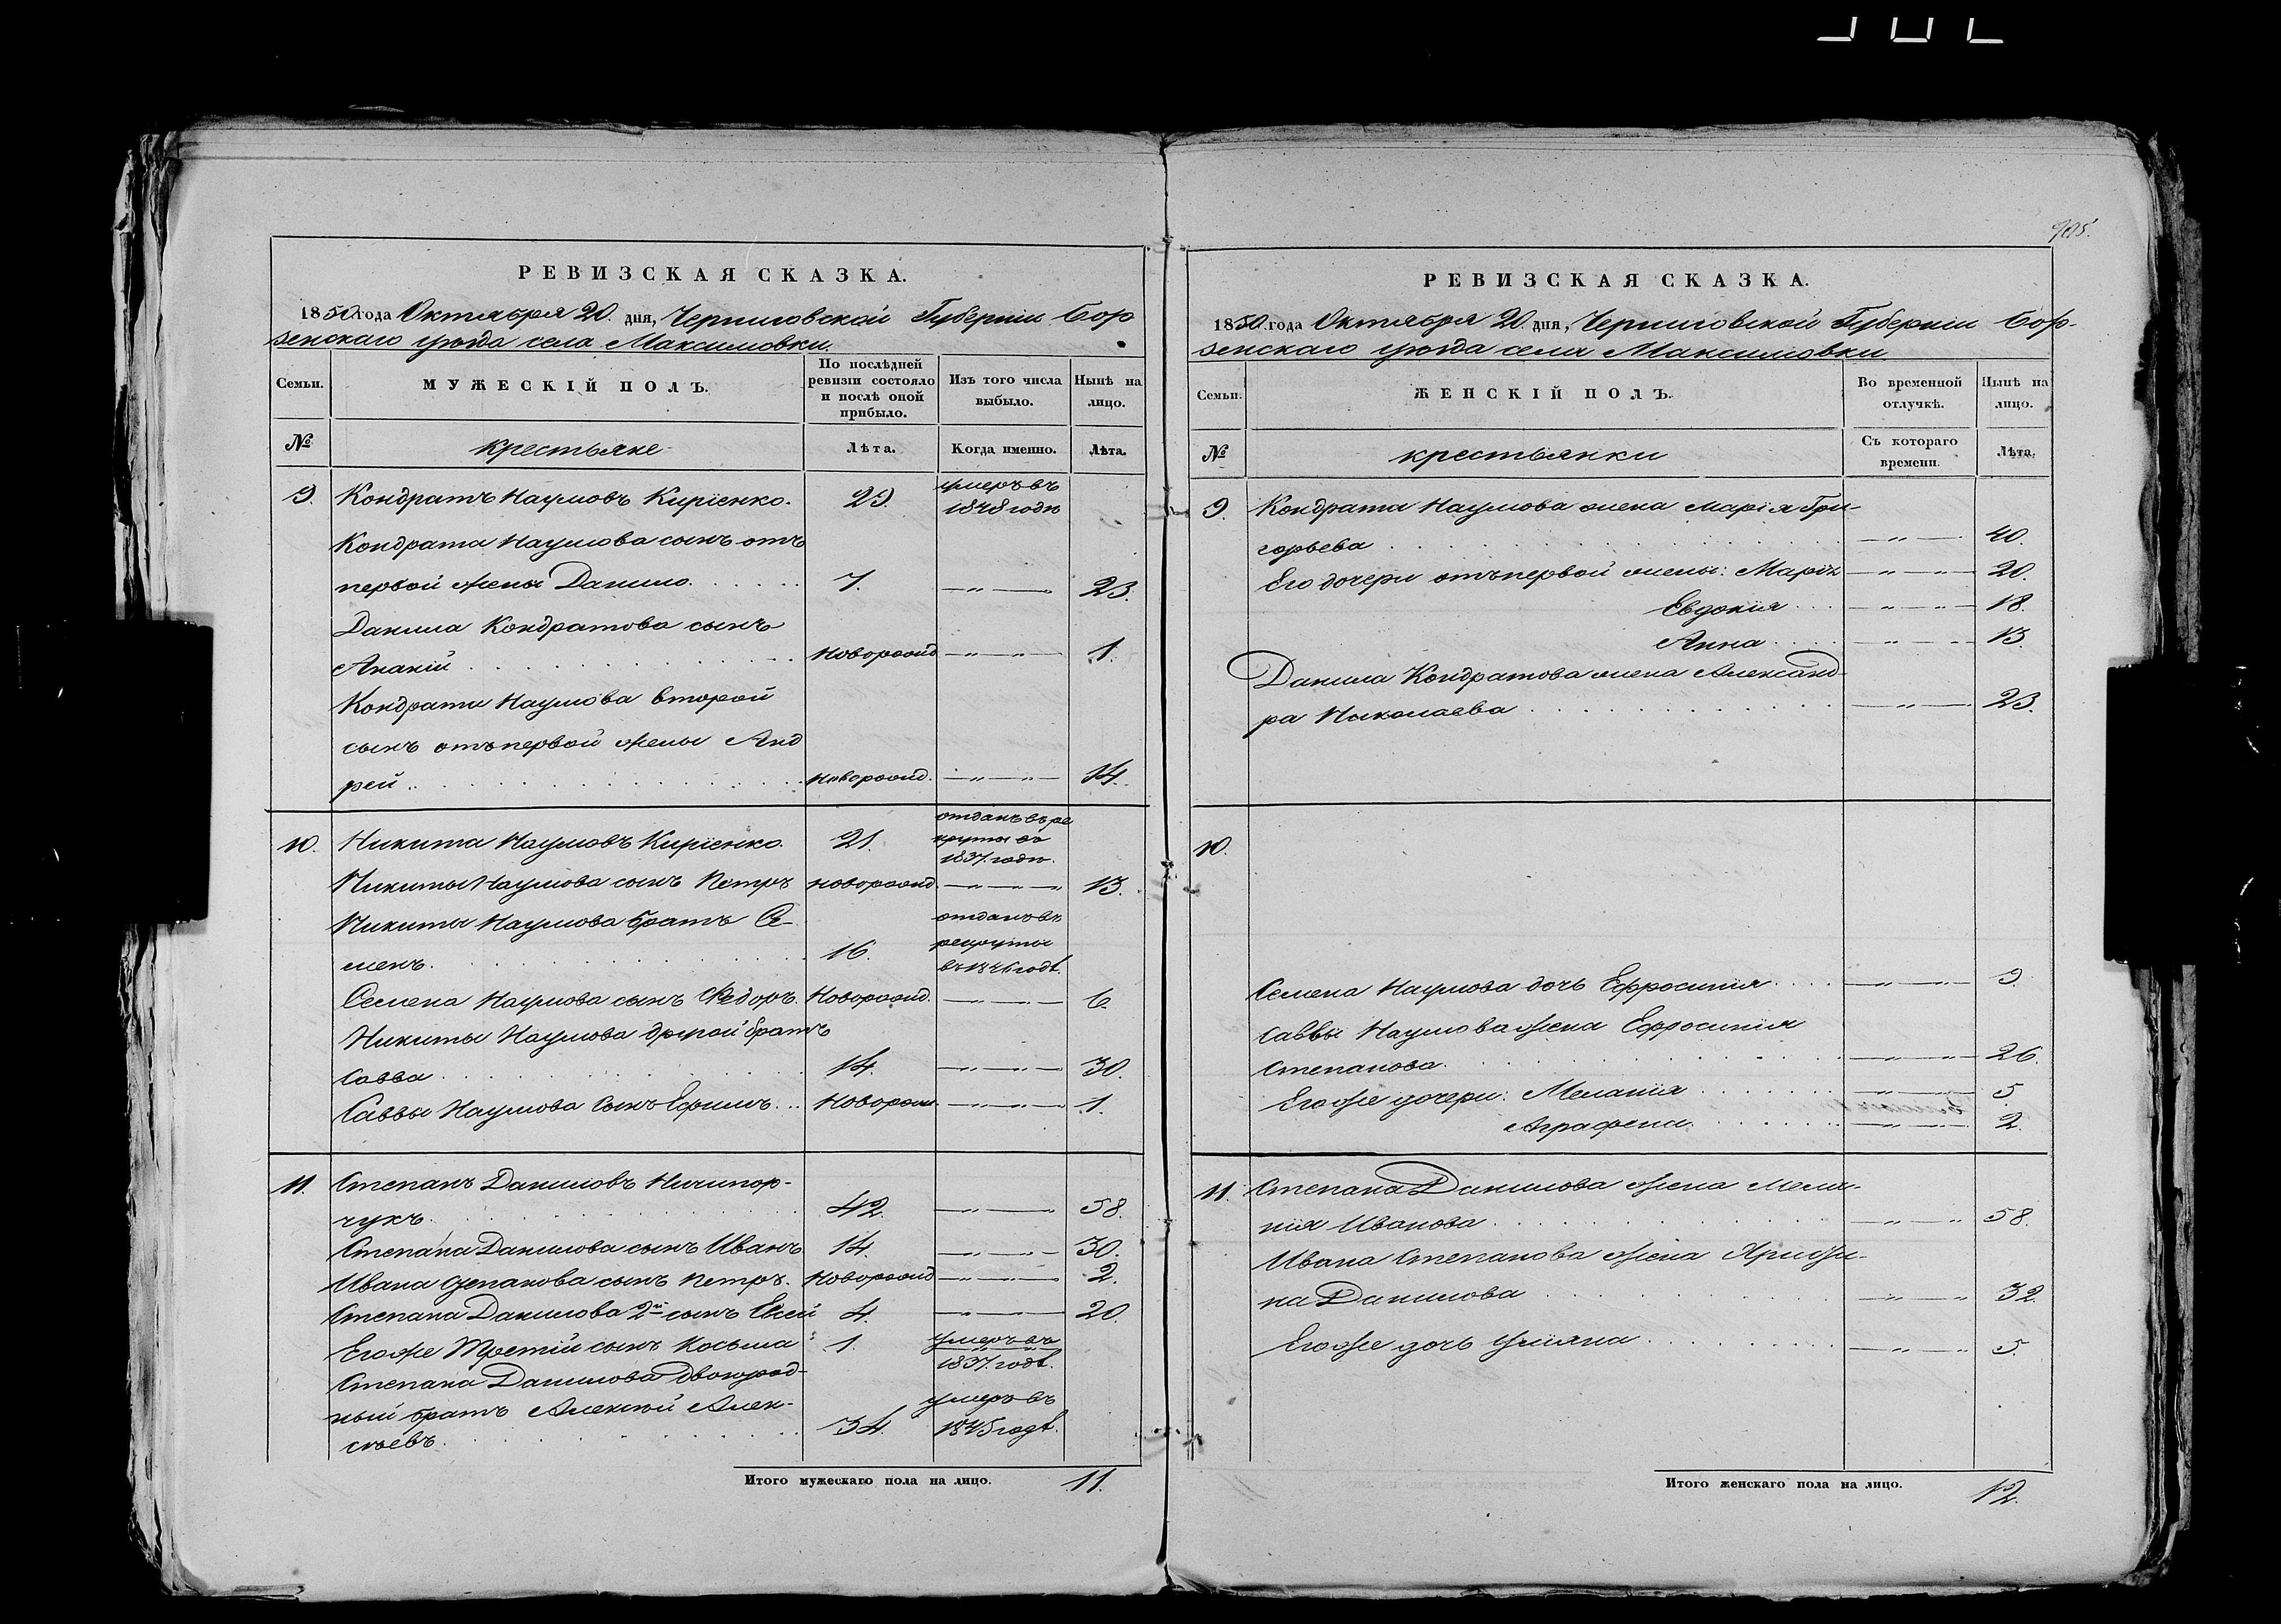 905.
РЕВИЗСКАЯ СКАЗКА.
1850 года Октября 20. дня, Черниговской Губернiи Бор
зенскаго уѣзда села Максимовки.
Семьи.
МУЖЕСКIЙ ПОЛЪ.
По послѣдней
ревизiи состояло
и послѣ оной
прибыло.
Изъ того числа
выбыло.
Нынѣ на
лицо.
№
крестьяне
Лѣта.
Когда именно.
Лѣта.
9. Кондратъ Наумовъ Кирiенко. 29. умеръ въ
1848 годѣ
Кондрата Наумова сынъ отъ
первой жены Данило. 7. —„— 23.
Данила Кондратова сынъ
Ананiй новорожд —„—„— 1.
Кондрата Наумова второй
сынъ отъ первой жены Анд
рей новорожд. —„—„— 14.
10. Никита Наумовъ Кирiенко. 21. отданъ въ ре
круты въ
1837. годѣ.
Никиты Наумова сынъ Петръ новорожд. —„—„ 13.
Никиты Наумова братъ Се-
менъ. 16. отданъ въ
рекруты
въ 1846 годѣ.
Семена Наумова сынъ Федоръ. Новорожд. —„—„— 6
Никиты Наумова другой братъ
Савва 14. —„—„— 30.
Саввы Наумова сынъ Ефимъ. Новорож —„—„— 1.
11. Степанъ Даниловъ Ничипор-
чукъ. 42. —„—„ 58.
Степана Данилова сынъ Иванъ 14. —„—„— 30.
Ивана Степанова сынъ Петръ. Новорожд —„—„— 2.
Степана Данилова 2й сынъ Евсей 4. —„—„— 20.
Егоже Третiй сынъ Косьма 1. умеръ въ
1837. годѣ.
Степана Данилова двоюрод-
ный братъ Алексѣй Алек-
сѣевъ. 34. умеръ въ
1845 годѣ.
Итого мужескаго пола на лицо. 11.
РЕВИЗСКАЯ СКАЗКА.
1850. года Октября 20. дня, Черниговской Губернiи Бор-
зенскаго уѣзда села Максимовки
Семьи.
ЖЕНСКIЙ ПОЛЪ.
Во временной
отлучкѣ.
Нынѣ на
лицо.
№
крестьянки
Съ котораго
времени.
Лѣта.
9. Кондрата Наумова жена Марiя Гри-
горьева —„— 40.
Его дочери отъ первой жены: Марiя —„—„— 20.
Евдокiя —„—„— 18.
Анна —„—„ 13.
Данила Кондратова жена Александ-
ра Николаева —„— 23.
10.
Семена Наумова дочь Ефросинiя —„—„— 9.
Саввы Наумова жена Ефросинiя
Степанова. —„—„— 26.
Егоже дочери: Меланiя —„—„— 5.
Аграфена. —„—„ 2.
11. Степана Данилова жена Мела-
нiя Иванова —„—„ 58.
Ивана Степанова жена Ирижи-
на Данилова —„—„ 32
Егоже дочь Улiяна —„—„ 5.
Итого женскаго пола на лицо. 12.